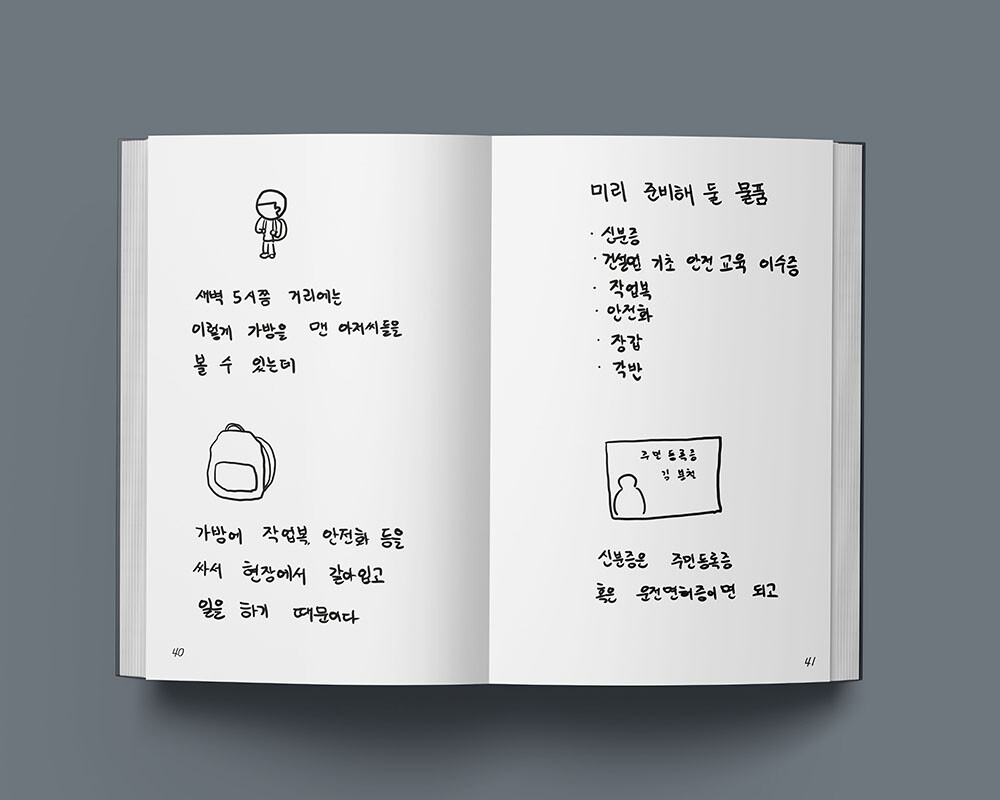 새벽 5시쯤 거리에는
이렇게 가방을 맨 아저씨들을
볼 수 있는데
가방에 작업복, 안전화 등을
싸서 현장에서 갈아입고
일을 하기 때문이다
40
미리 준비해 둘 물품
· 신분증
· 건설업 기초 안전 교육 이수증
· 작업복
· 안전화
· 장갑
· 각반
주민등록증
김 부천
신분증은 주민등록증
혹은 운전면허증이면 되고
41